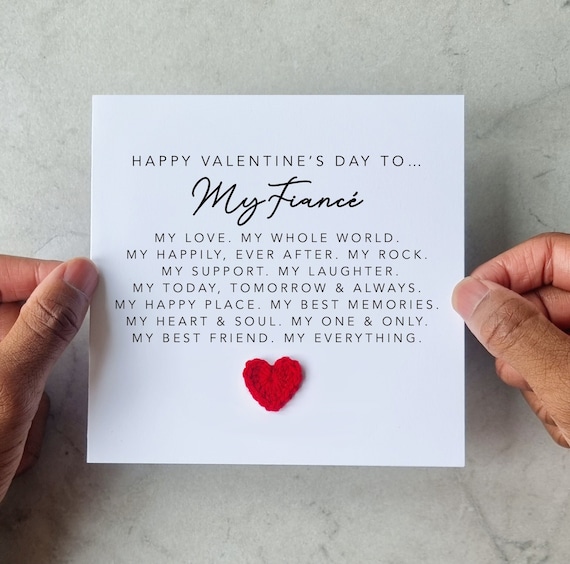 HAPPY VALENTINE'S DAY TO...
My Fiancé
MY LOVE. MY WHOLE WORLD.
MY HAPPILY, EVER AFTER. MY ROCK.
MY SUPPORT. MY LAUGHTER.
MY TODAY, TOMORROW & ALWAYS.
MY HAPPY PLACE. MY BEST MEMORIES.
MY HEART & SOUL. MY ONE & ONLY.
MY BEST FRIEND. MY EVERYTHING.